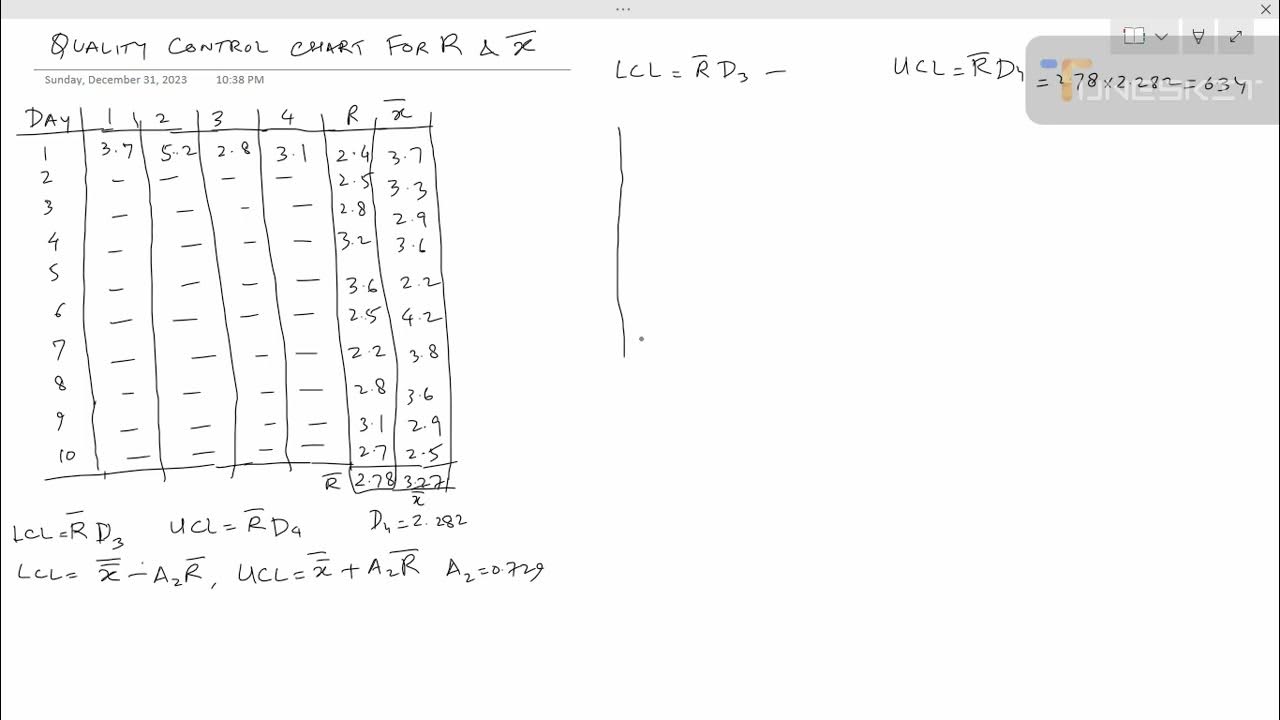 QUALITY CONTROL CHART FOR R & x̅
Sunday, December 31, 2023 10:38 PM
DAY 1 2 3 4 R x̅
1 3.7 5.2 2.8 3.1 2.4 3.7
2 – – – – 2.5 3.3
3 – – – – 2.8 2.9
4 – – – – 3.2 3.6
5 – – – – 3.6 2.2
6 – – – – 2.5 4.2
7 – – – – 2.2 3.8
8 – – – – 2.8 3.6
9 – – – – 3.1 2.9
10 – – – – 2.7 2.5
R̅ 2.78 3.27
x̿
LCL = R̅ D₃ UCL = R̅ D₄ D₄ = 2.282
LCL = x̿ – A₂R̅, UCL = x̿ + A₂R̅ A₂ = 0.729
LCL = R̅ D₃ –
UCL = R̅ D₄ = 2.78 × 2.282 = 634